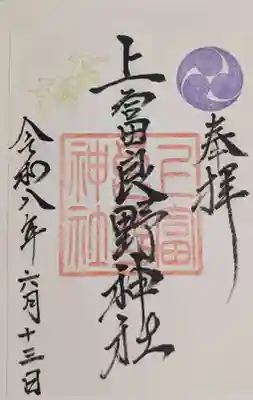 奉拝
上富良野神社
上富良野神社
令和八年六月十三日